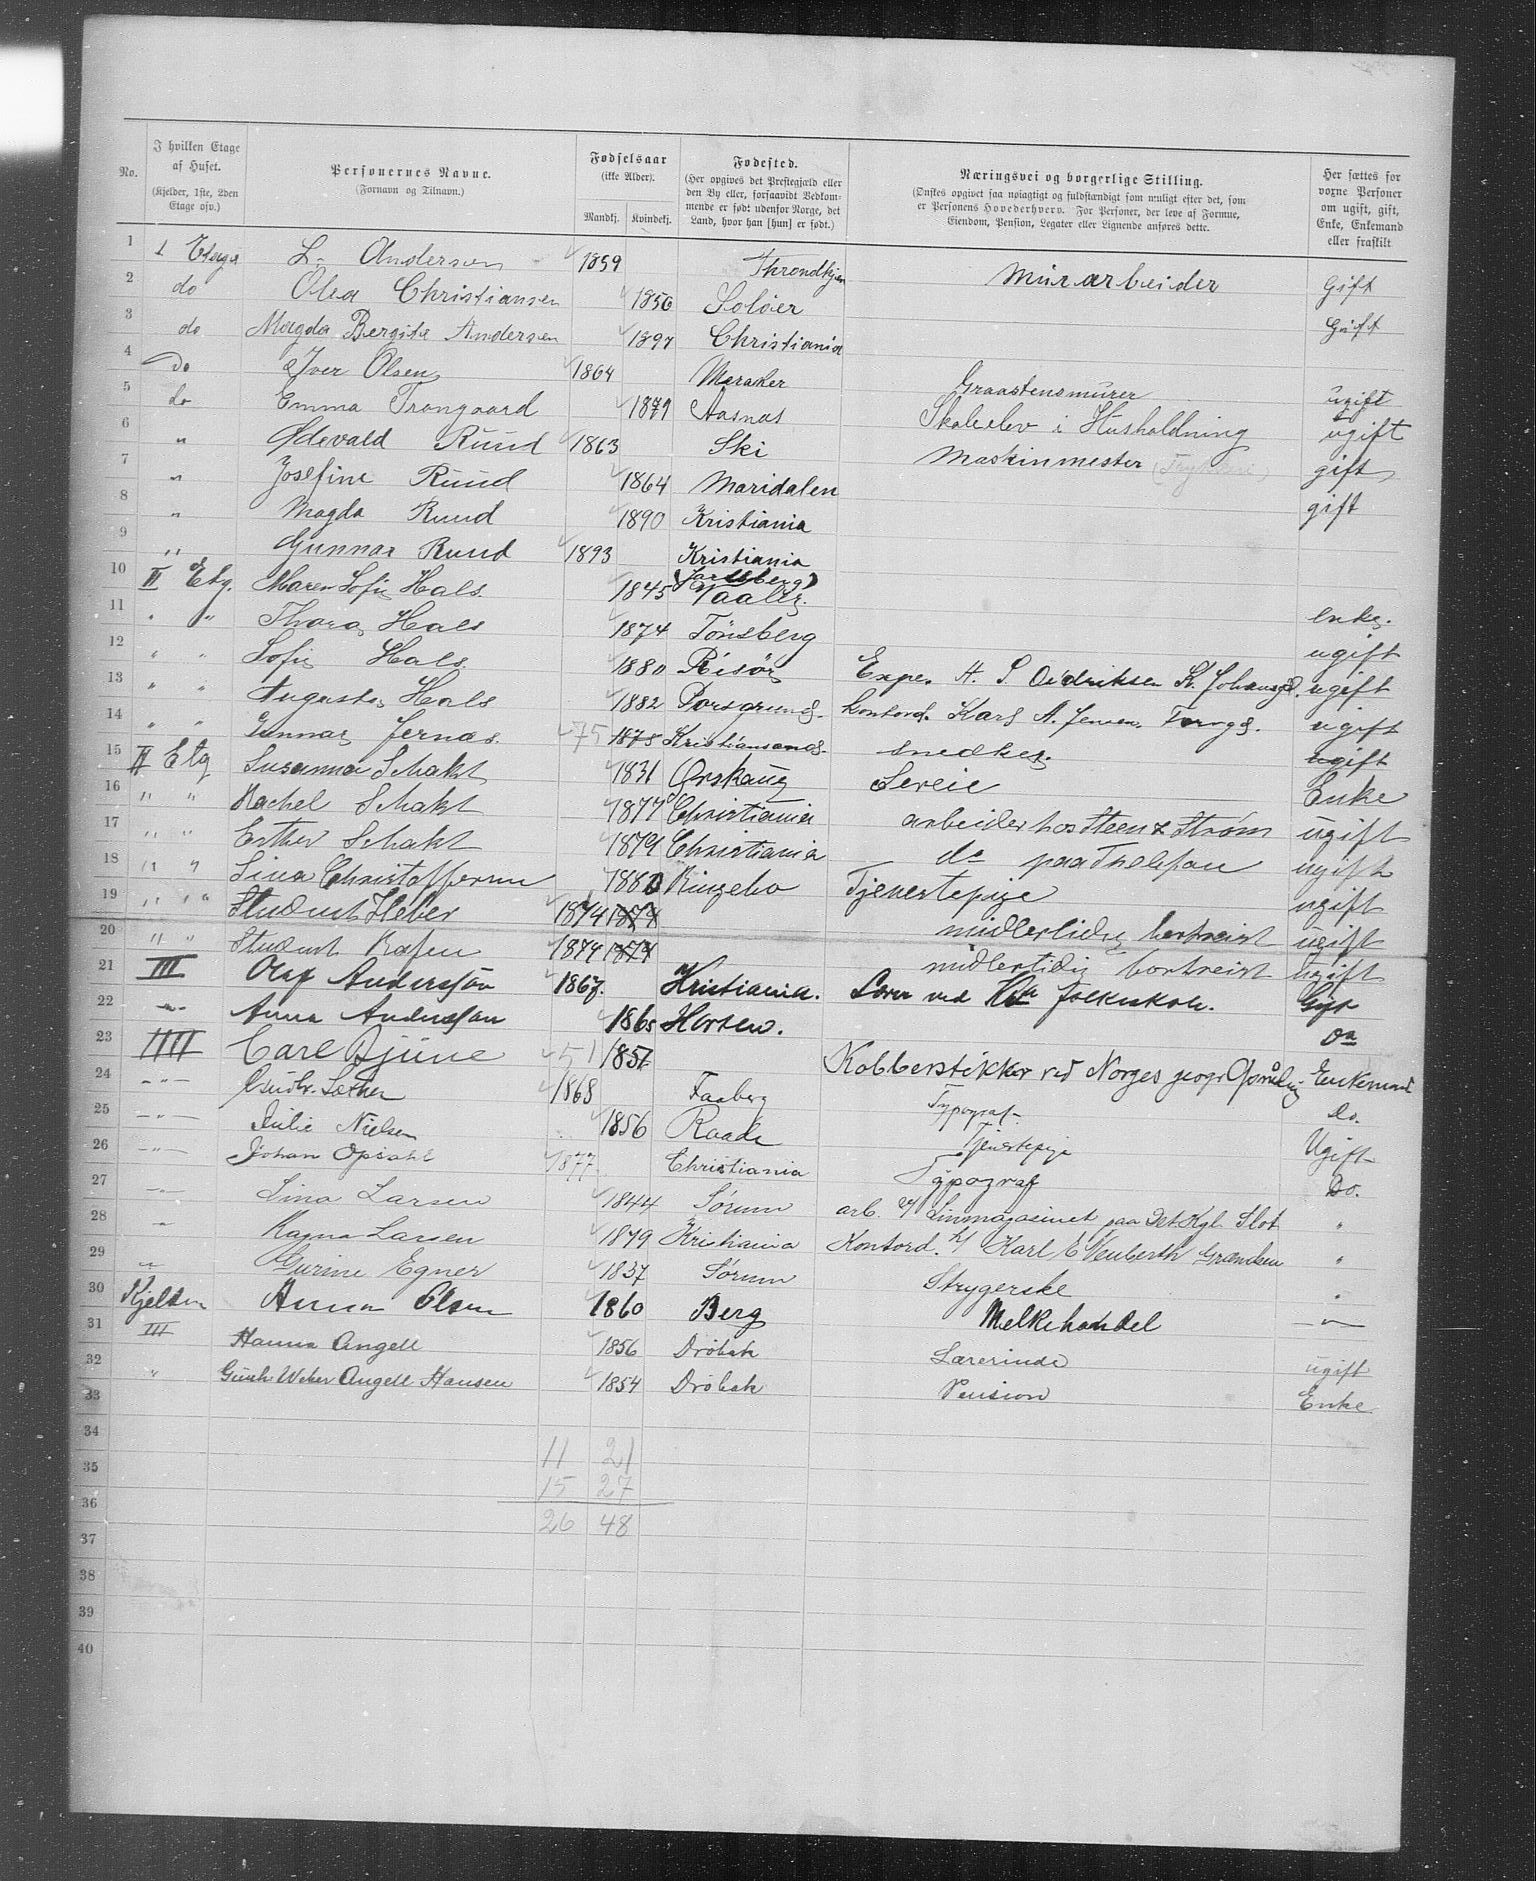 No. | I hvilken Etage af Huset. (Kjelder, 1ste, 2den Etage osv.) | Personernes Navne. (Fornavn og Tilnavn.) | Fødselsaar (ikke Alder). Mandkj. Kvindekj. | Fødested. (Her opgives det Prestegjæld eller den By eller, forsaavidt Vedkommende er født udenfor Norge, det Land, hvor han [hun] er født.) | Næringsvei og borgerlige Stilling. (Ønskes opgivet saa nøiagtigt og fuldstændigt som muligt efter det, som er Personens Hovederhverv. For Personer, der leve af Formue, Eiendom, Pension, Legater eller Lignende anføres dette. | Her sættes for voxne Personer om ugift, gift, Enke, Enkemand eller fraskilt
1 1 Etage L. Andersen 1859 Throndhjem Murarbeider Gift
2 do Olea Christiansen 1856 Soløer Gift
3 do Magda Bergite Andersen 1897 Christiania
4 Do Iver Olsen 1864 Meraker Graastensmurer ugift
5 do Emma Trongaard 1879 Aasnas Skoleelev i Husholdning ugift
6 " Odevald Ruud 1863 Ski Maskinmester gift
7 " Josefine Ruud 1864 Maridalen gift
8 " Magda Ruud 1890 Kristiania
9 " Gunnar Ruud 1893 Kristiania
10 II Etg. Maren Sofie Hals. 1845 (Jarlsberg) Vaale. enke.
11 " " Thora Hals 1874 Tönsberg ugift
12 " " Sofie Hals. 1880 Risör Exper. A. S. Didriksen K. Johansgd. ugift
13 " " Augusta Hals 1882 Porsgrund. Kontord. Karl A. Jensen Torvgd. ugift
14 " " Gunnar Jernæs. 75 1875 Kristiansand. snedker. ugift
15 II Etg Susanna Schakt 1831 Ørskaug Enke
16 " " Rachel Schakt 1877 Christiania arbeider hos Steen & Strøm ugift
17 " " Esther Schakt 1879 Christiania do paa Thelefon ugift
18 " " Lina Christoffersen 1880 Ringebo Tjenestepige ugift
19 " " " Student Heber 1874 1874 midlertidig bortreist ugift
20 " " Student Rafen 1874 1874 midlertidig bortreist ugift
21 III Olaf Anderssøn 1867. Kristiania. Lærer ved Kra folkeskole. Gift
22 -"- Anna Anderssøn 1865 Horten. Do
23 IIII Carl Djüne 51 1851 Kobberstikker ved Norges geogr. Opmåling Enkemand
24 -"- Gudbr. Sæther 1868 Faaberg Typograf- Do.
25 -"- Julie Nielsen 1856 Raade Tjenestepige Ugift
26 -"- Johan Opsahl 1877. Christiania Typograf Do.
27 -"- Lina Larsen 1844 Sørum arb. v/ Linmagasinet paa Det Kgl. Slot "
28 " Ragna Larsen 1879 Kristiania Kontord. h/ Karl E Neuberth Grændsen "
29 " Gurine Egner 1837 Sørum Strygerske "
30 Kjelder Anna Olsen 1860 Berg Melkehandel -"-
31 III Hanna Angell 1856 Drøbak Lærerinde ugift
32 " Weber Angell Hansen 1854 Drøbak Pension Enke
33
34
35 11 21
36 15 27
37 26 48
38
39
40